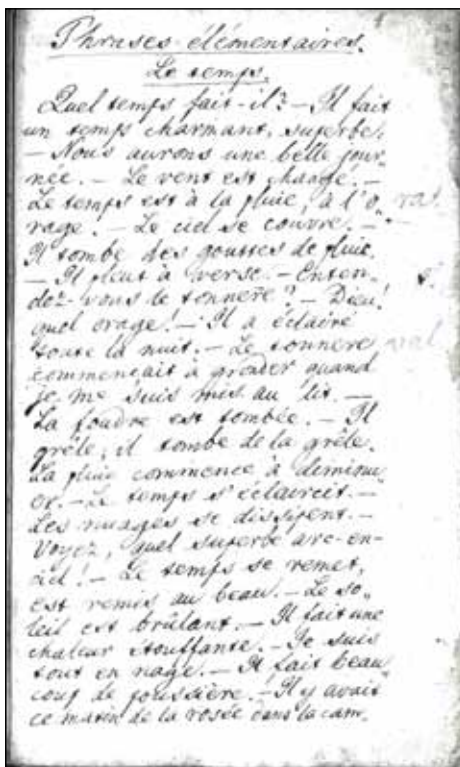 Phrases élémentaires.
Le temps.
Quel temps fait-il? — Il fait
un temps charmant, superbe.
— Nous aurons une belle jour-
née. — Le vent est changé. —
Le temps est à la pluie, à l'o-
rage. — Le ciel se couvre. —
Il tombe des gouttes de pluie.
— Il pleut à verse. — Enten-
dez-vous le tonnere? — Dieu!
quel orage! — Il a éclairé
toute la nuit. — Le tonnere
commençait à gronder quand
je me suis mis au lit. —
La foudre est tombée. — Il
grêle, il tombe de la grêle.
La pluie commence à diminu-
er. — Le temps s'éclaircit. —
Les nuages se dissipent. —
Voyez, quel superbe arc-en-
ciel! — Le temps se remet,
est remis au beau. — Le so-
leil est brûlant. — Il fait une
chaleur étouffante. — Je suis
tout en nage. — Il fait beau-
coup de poussière. — Il y avait
ce matin de la rosée dans la cam-